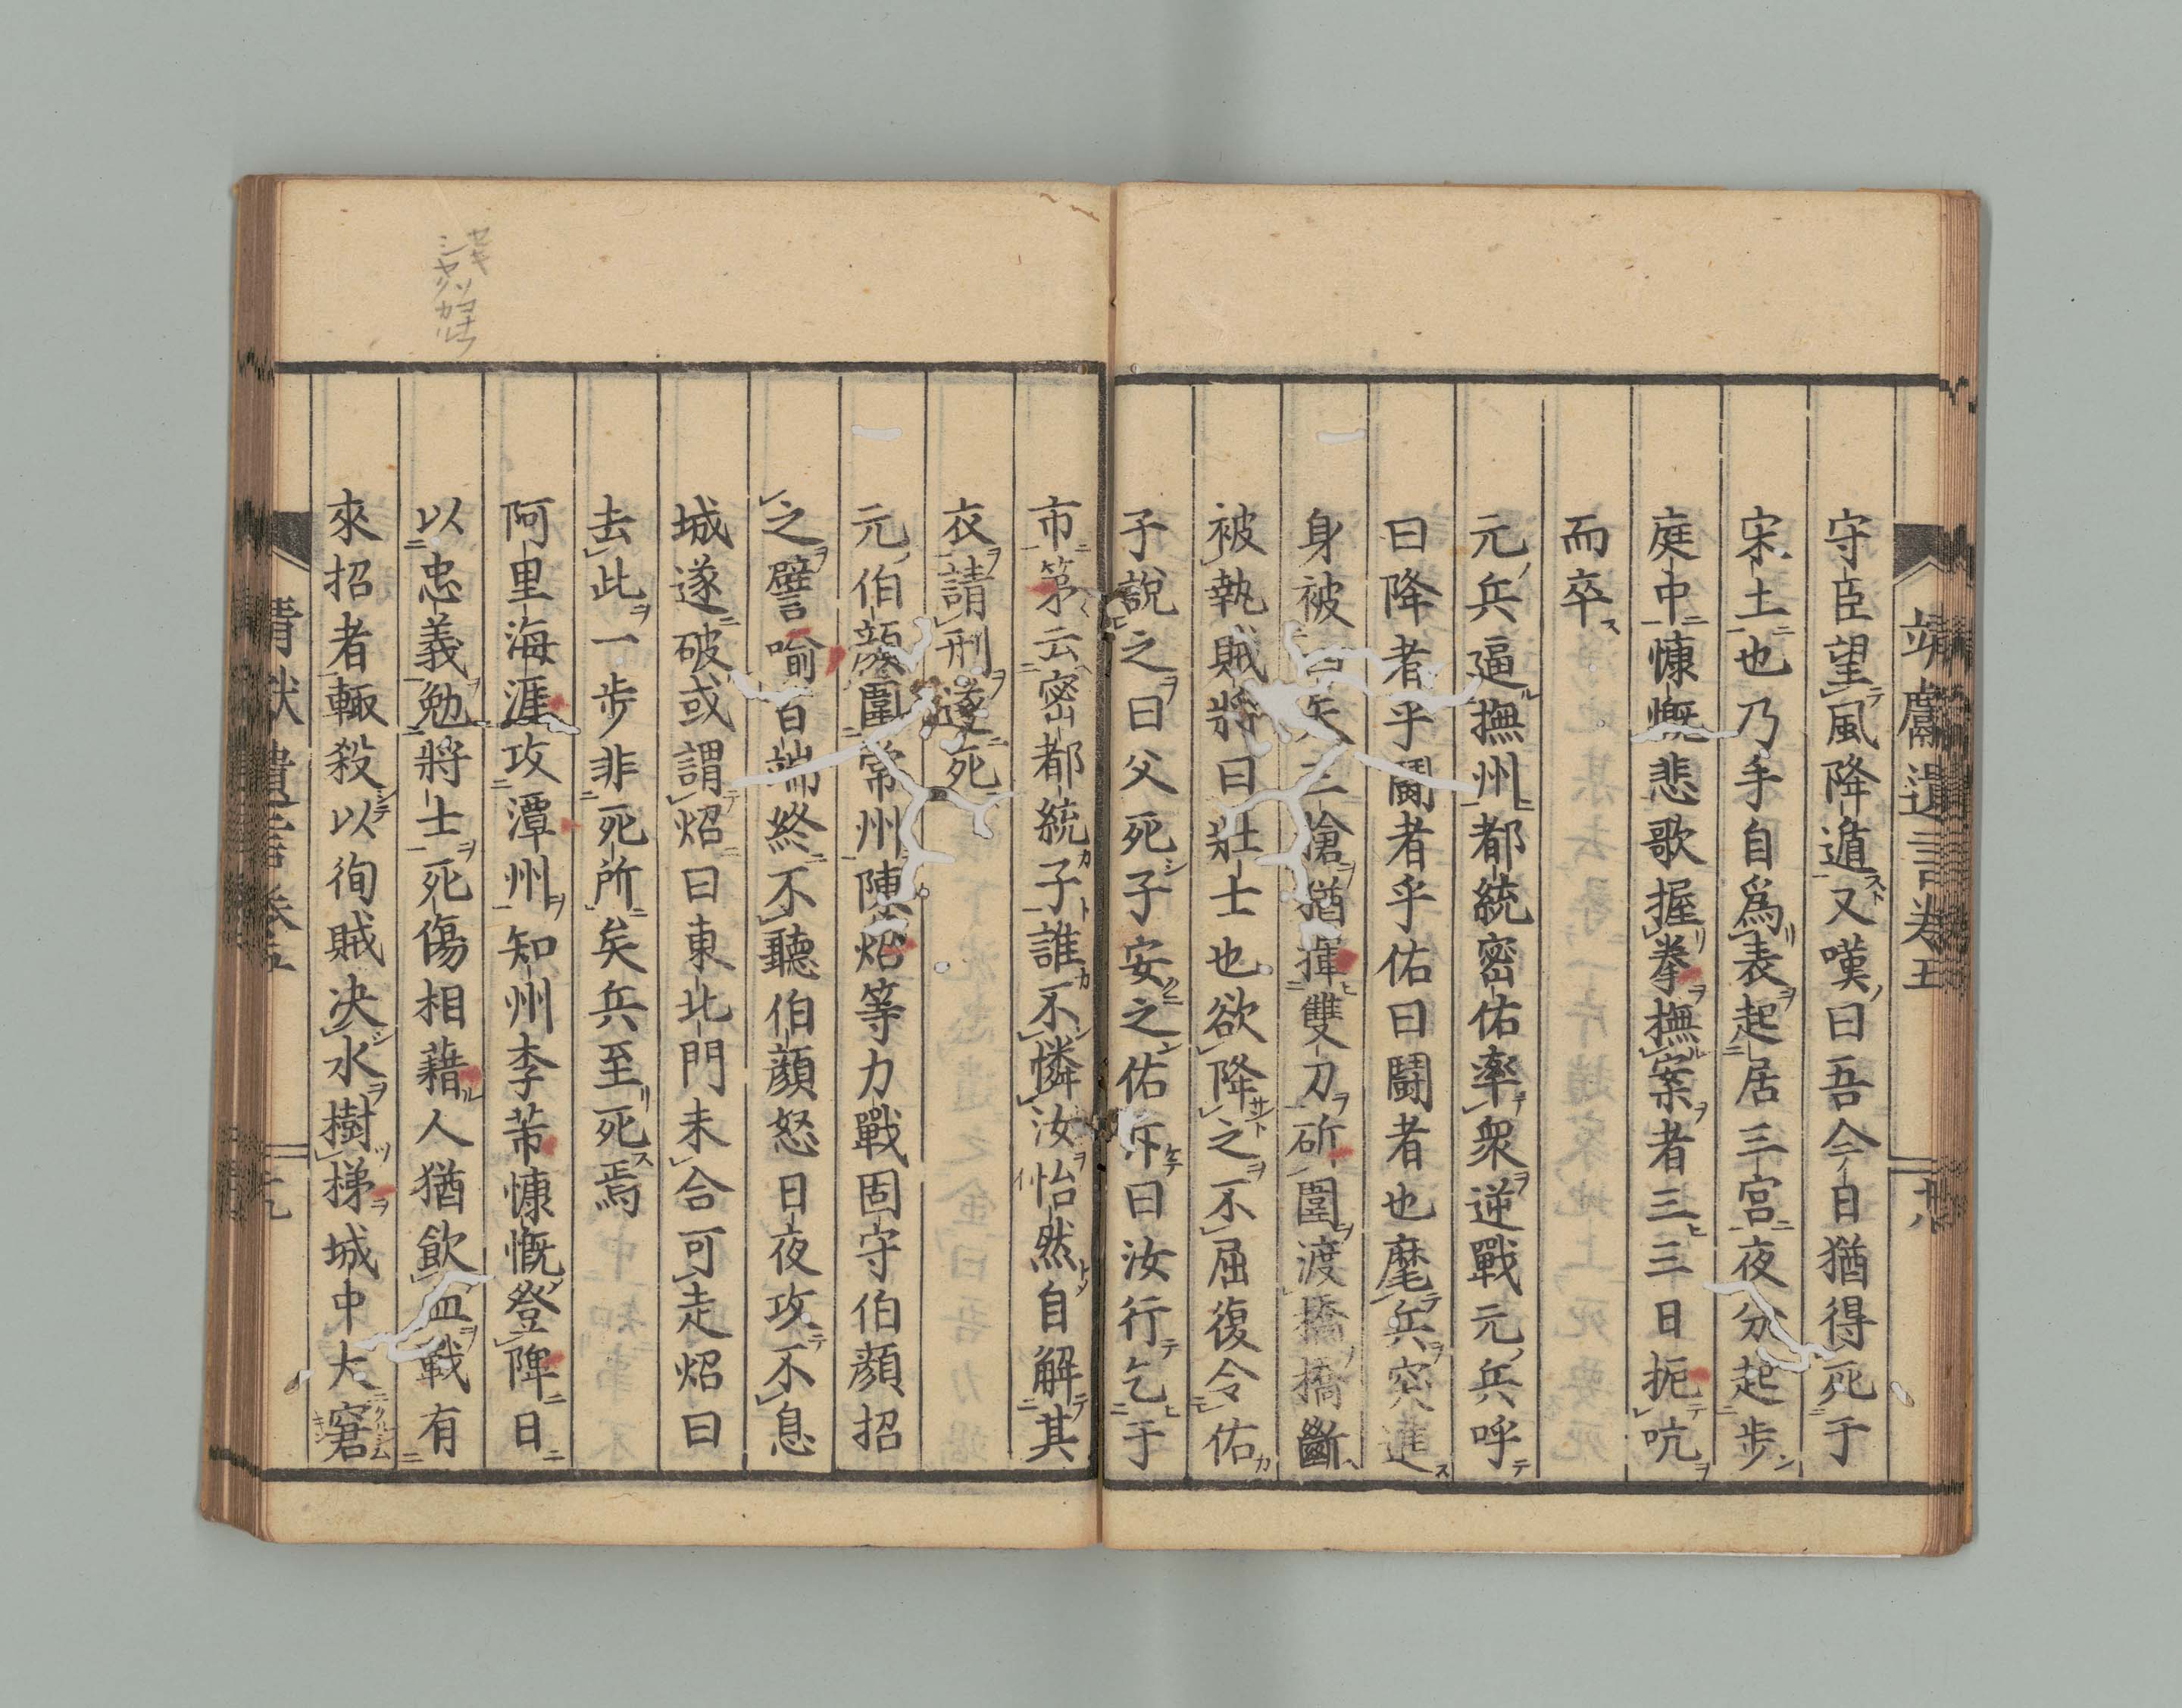 靖獻遺言卷五
守臣望風降遁又嘆曰吾今日猶得死于
宋土也乃手自爲表起居三宮夜分起步
庭中慷慨悲歌握拳撫案者三三日扼吭
而卒
元兵逼撫州都統密佑率衆逆戰元兵呼
曰降者乎鬪者乎佑曰鬪者也麾兵突進
身被矢三槍猶揮雙刀斫圍渡橋橋斷
被執賊將曰壯士也欲降之不屈復令佑
子說之曰父死子安之佑斥曰汝行乞于
市第云密都統子誰不憐汝怡然自解其
衣請刑遂死
元伯顏圍常州陳炤等力戰固守伯顏招
之譬喻百端終不聽伯顏怒日夜攻不息
城遂破或謂炤曰東北門未合可走炤曰
去此一步非死所矣兵至死焉
阿里海涯攻潭州知州李芾慷慨登陴日
以忠義勉將士死傷相藉人猶飮血戰有
來招者輒殺以徇賊決水樹梯城中大窘